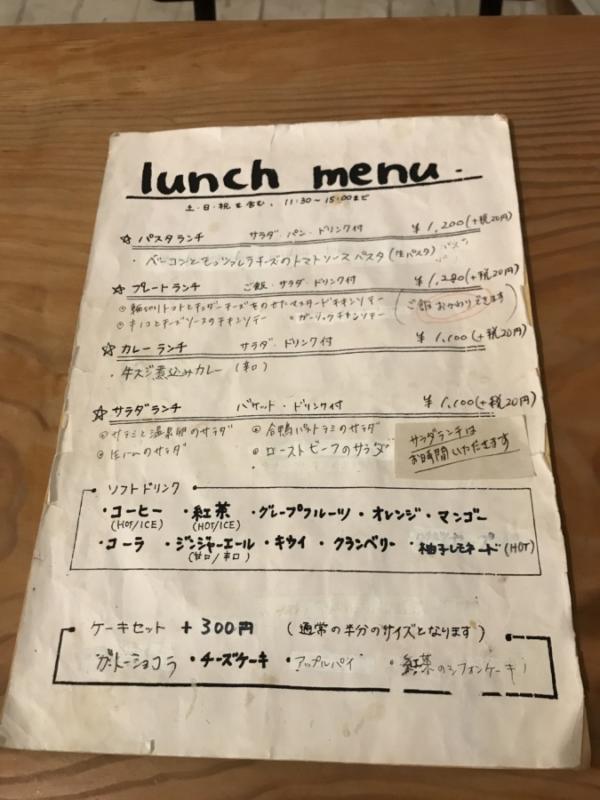 lunch menu.
土・日・祝も含む、11:30〜15:00まで
☆パスタランチ サラダ・パン・ドリンク付 ¥1,200(+税20円)
・ベーコンとモッツァレラチーズのトマトソースパスタ(生パスタ)
☆プレートランチ ご飯・サラダ・ドリンク付 ¥1,280(+税20円)
◎輪切りトマトとチェダーチーズをのせたマスタードチキンソテー
ご飯おかわりできます
◎キノコとチーズソースのチキンソテー ◎ガーリックチキンソテー
☆カレーランチ サラダ・ドリンク付 ¥1,100(+税20円)
・牛スジ煮込みカレー(辛口)
☆サラダランチ バケット・ドリンク付 ¥1,100(+税20円)
◎サラミと温泉卵のサラダ ◎合鴨パストラミのサラダ
◎生ハムのサラダ ◎ローストビーフのサラダ
サラダランチは
お時間いただきます
・ソフトドリンク
・コーヒー ・紅茶 ・グレープフルーツ ・オレンジ ・マンゴー
(HOT/ICE) (HOT/ICE)
・コーラ ・ジンジャーエール ・キウイ ・クランベリー ・柚子レモネード(HOT)
(甘口/辛口)
ケーキセット +300円 (通常の半分のサイズとなります)
ガトーショコラ ・チーズケーキ ・アップルパイ ・紅茶のシフォンケーキ